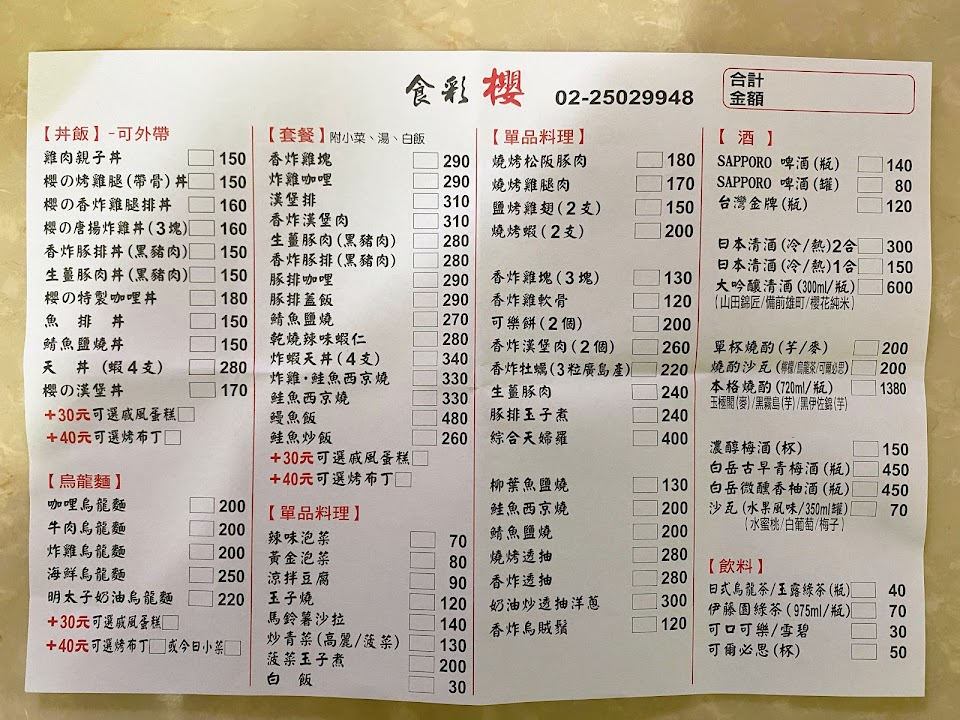 食彩櫻 02-25029948
合計
金額
【丼飯】-可外帶
雞肉親子丼 150
櫻の烤雞腿(帶骨)丼 150
櫻の香炸雞腿排丼 160
櫻の唐揚炸雞丼(3塊) 160
香炸豚排丼(黑豬肉) 150
生薑豚肉丼(黑豬肉) 150
櫻の特製咖哩丼 180
魚排丼 150
鯖魚鹽燒丼 150
天丼(蝦4支) 280
櫻の漢堡丼 170
+30元可選戚風蛋糕
+40元可選烤布丁
【烏龍麵】
咖哩烏龍麵 200
牛肉烏龍麵 200
炸雞烏龍麵 200
海鮮烏龍麵 250
明太子奶油烏龍麵 220
+30元可選戚風蛋糕
+40元可選烤布丁 或今日小菜
【套餐】附小菜、湯、白飯
香炸雞塊 290
炸雞咖哩 290
漢堡排 310
香炸漢堡肉 310
生薑豚肉(黑豬肉) 280
香炸豚排(黑豬肉) 280
豚排咖哩 290
豚排蓋飯 290
鯖魚鹽燒 270
乾燒辣味蝦仁 280
炸蝦天丼(4支) 340
炸雞·鮭魚西京燒 330
鮭魚西京燒 330
鰻魚飯 480
鮭魚炒飯 260
+30元可選戚風蛋糕
+40元可選烤布丁
【單品料理】
辣味泡菜 70
黃金泡菜 80
涼拌豆腐 90
玉子燒 120
馬鈴薯沙拉 140
炒青菜(高麗/菠菜) 130
菠菜玉子煮 200
白飯 30
【單品料理】
燒烤松阪豚肉 180
燒烤雞腿肉 170
鹽烤雞翅(2支) 150
燒烤蝦(2支) 200
香炸雞塊(3塊) 130
香炸雞軟骨 120
可樂餅(2個) 200
香炸漢堡肉(2個) 260
香炸牡蠣(3粒廣島產) 220
生薑豚肉 240
豚排玉子煮 240
綜合天婦羅 400
柳葉魚鹽燒 130
鮭魚西京燒 200
鯖魚鹽燒 200
燒烤透抽 280
香炸透抽 280
奶油炒透抽洋蔥 300
香炸烏賊鬚 120
【酒】
SAPPORO 啤酒(瓶) 140
SAPPORO 啤酒(罐) 80
台灣金牌(瓶) 120
日本清酒(冷/熱)2合 300
日本清酒(冷/熱)1合 150
大吟釀清酒(300ml/瓶) 600
(山田錦匠/備前雄町/櫻花純米)
單杯燒酌(芋/麥) 200
燒酌沙瓦(檸檬/烏龍茶/可爾必思) 200
本格燒酌(720ml/瓶) 1380
玉極閣(麥)/黑霧島(芋)/黑伊佐錦(芋)
濃醇梅酒(杯) 150
白岳古早青梅酒(瓶) 450
白岳微醺香柚酒(瓶) 450
沙瓦(水果風味/350ml罐) 70
(水蜜桃/白葡萄/梅子)
【飲料】
日式烏龍茶/玉露綠茶(瓶) 40
伊藤園綠茶(975ml/瓶) 70
可口可樂/雪碧 30
可爾必思(杯) 50